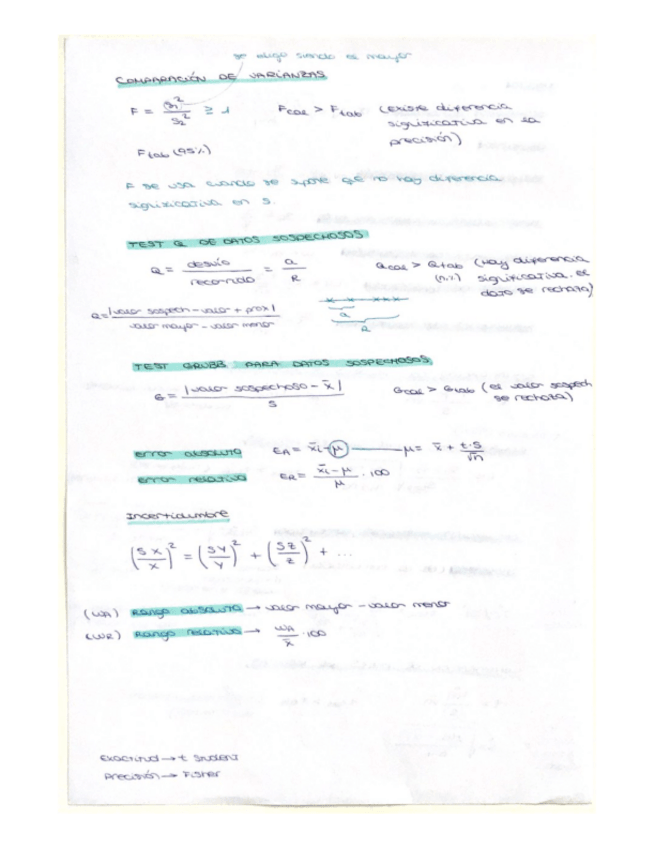 se elige siendo el mayor
COMPARACIÓN DE VARIANZAS
F = S₁² / S₂² ≥ 1    Fcal > Ftab (existe diferencia
significativa en la
precisión)
Ftab (95%)
F se usa cuando se supone que no hay diferencia
significativa en s.
TEST Q DE DATOS SOSPECHOSOS
Q = desvío / recorrido = a / R    Qcal > Qtab (Hay diferencia
(n.r.) significativa. el
dato se rechaza)
Q = |valor sospech - valor + prox| / valor mayor - valor menor
a
R
TEST GRUBB PARA DATOS SOSPECHOSOS
G = |valor sospechoso - x̄| / S    Gcal > Gtab (el valor sospech
se rechaza)
error absoluto    EA = x̄i - μ    μ = x̄ + t·s / √n
error relativo    ER = x̄i - μ / μ · 100
Incertidumbre
(Sx / x)² = (Sy / y)² + (Sz / z)² + ...
(WA) Rango absoluto → valor mayor - valor menor
(WR) Rango relativo → WA / x̄ · 100
Exactitud → t Student
Precisión → Fisher